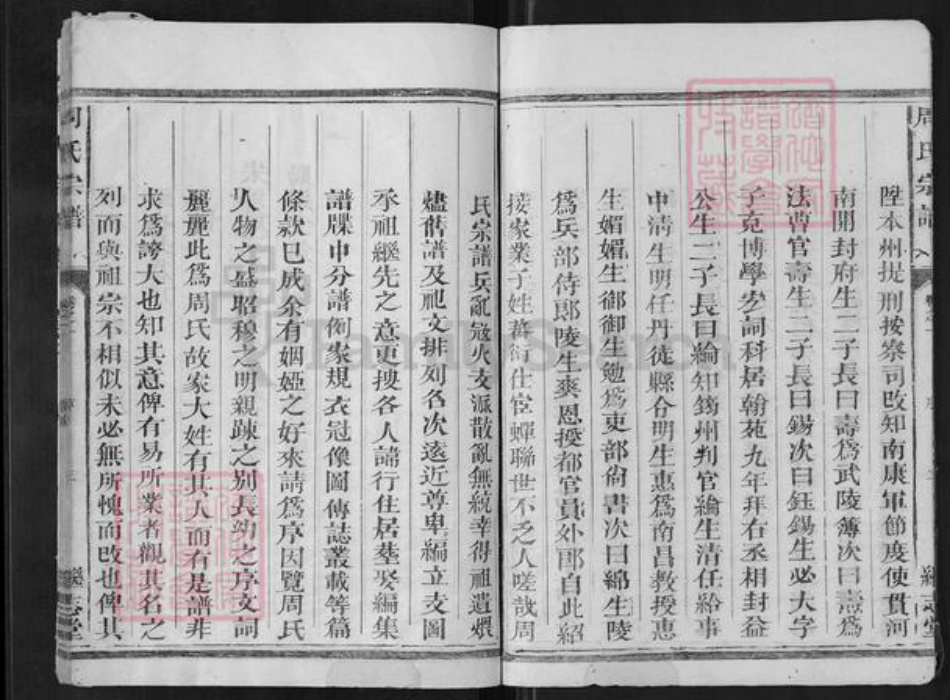 周氏宗譜
陞本州提刑按察司改知南康軍節度使貫河
南開封府生二子長曰壽為武陵簿次曰燾為
法曹官壽生二子長曰錫次曰鈺錫生必大字
子充博學宏詞科居翰苑九年拜右丞相封益
公生二子長曰綸知筠州判官綸生清任給事
中清生明任丹徒縣令明生惠為南昌教授惠
生媚媚生御御生勉為吏部尚書次曰綿生陵
為兵部侍郎陵生爽恩授都官員外郎自此紹
接家業子姓蕃衍仕宦蟬聯世不乏人嗟哉周
氏宗譜兵亂寇火支派散亂無統幸得祖遺煨
燼舊譜及祀文排列名次遠近尊卑編立支圖
承祖繼先之意更搜各人諱行住居塋娶編集
譜牒中分譜例家規衣冠像圖傳誌叢載等篇
條款已成余有姻婭之好來請為序因覽周氏
人物之盛昭穆之明親疎之別長幼之序文詞
麗麗此為周氏故家大姓有其人而有是譜非
求為誇大也知其意俾有易所業者觀其名之
列而與祖宗不相似未必無所愧而改也俾其
周氏宗譜